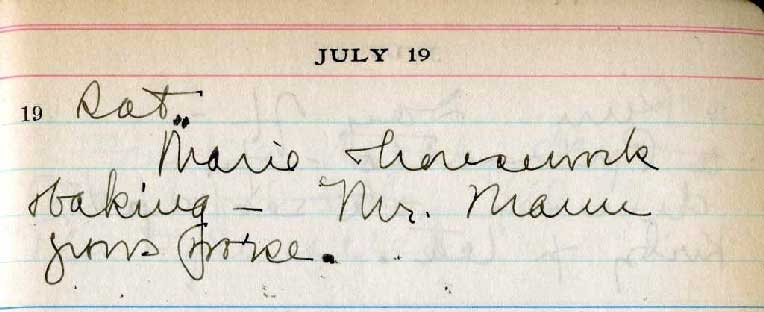 JULY 19
19 Sat.
Marie housework
& baking - Mr. Mann
grows worse.